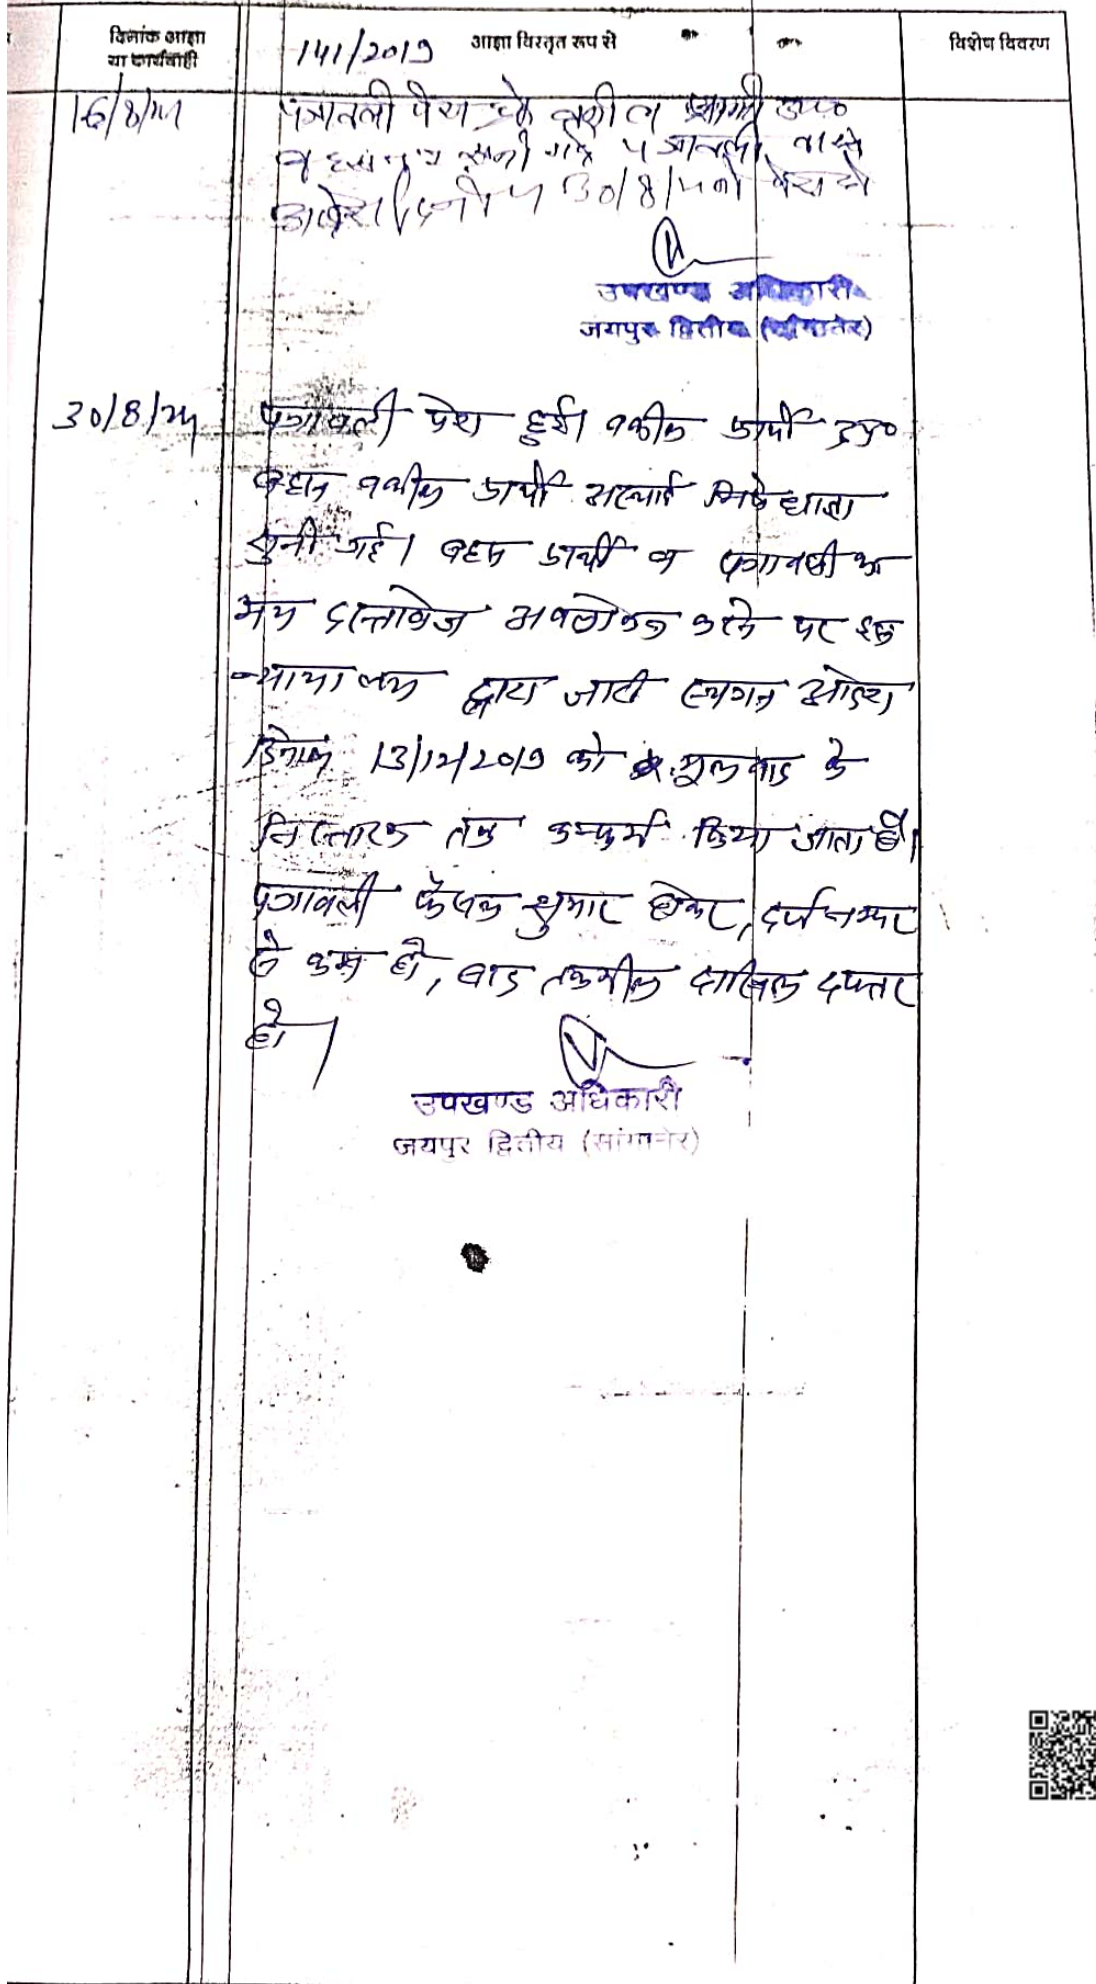 दिनांक आज्ञा
या कार्यवाही
141/2019 आज्ञा विस्तृत रूप से
विशेष विवरण
16/8/24 पत्रावली पेश वकील प्रार्थी उप०
बहस सुनी गई पत्रावली वास्ते
आदेश दिनांक 30/8/24 को पेश हो
उपखण्ड अधिकारी
जयपुर द्वितीय (सांगानेर)
30/8/24 पत्रावली पेश हुई। वकील प्रार्थी उप०
बहस वकील प्रार्थी अस्थाई निषेधाज्ञा
सुनी गई। बहस प्रार्थी व पत्रावली का
मय दस्तावेज अवलोकन करने पर इस
न्यायालय द्वारा जारी स्थगन आदेश
दिनांक 13/12/2019 को मूलवाद के
निस्तारण तक कन्फर्म किया जाता है।
पत्रावली फैसल शुमार होकर, दर्ज नम्बर
से कम हो, बाद तकमील दाखिल दफ्तर
हो।
उपखण्ड अधिकारी
जयपुर द्वितीय (सांगानेर)